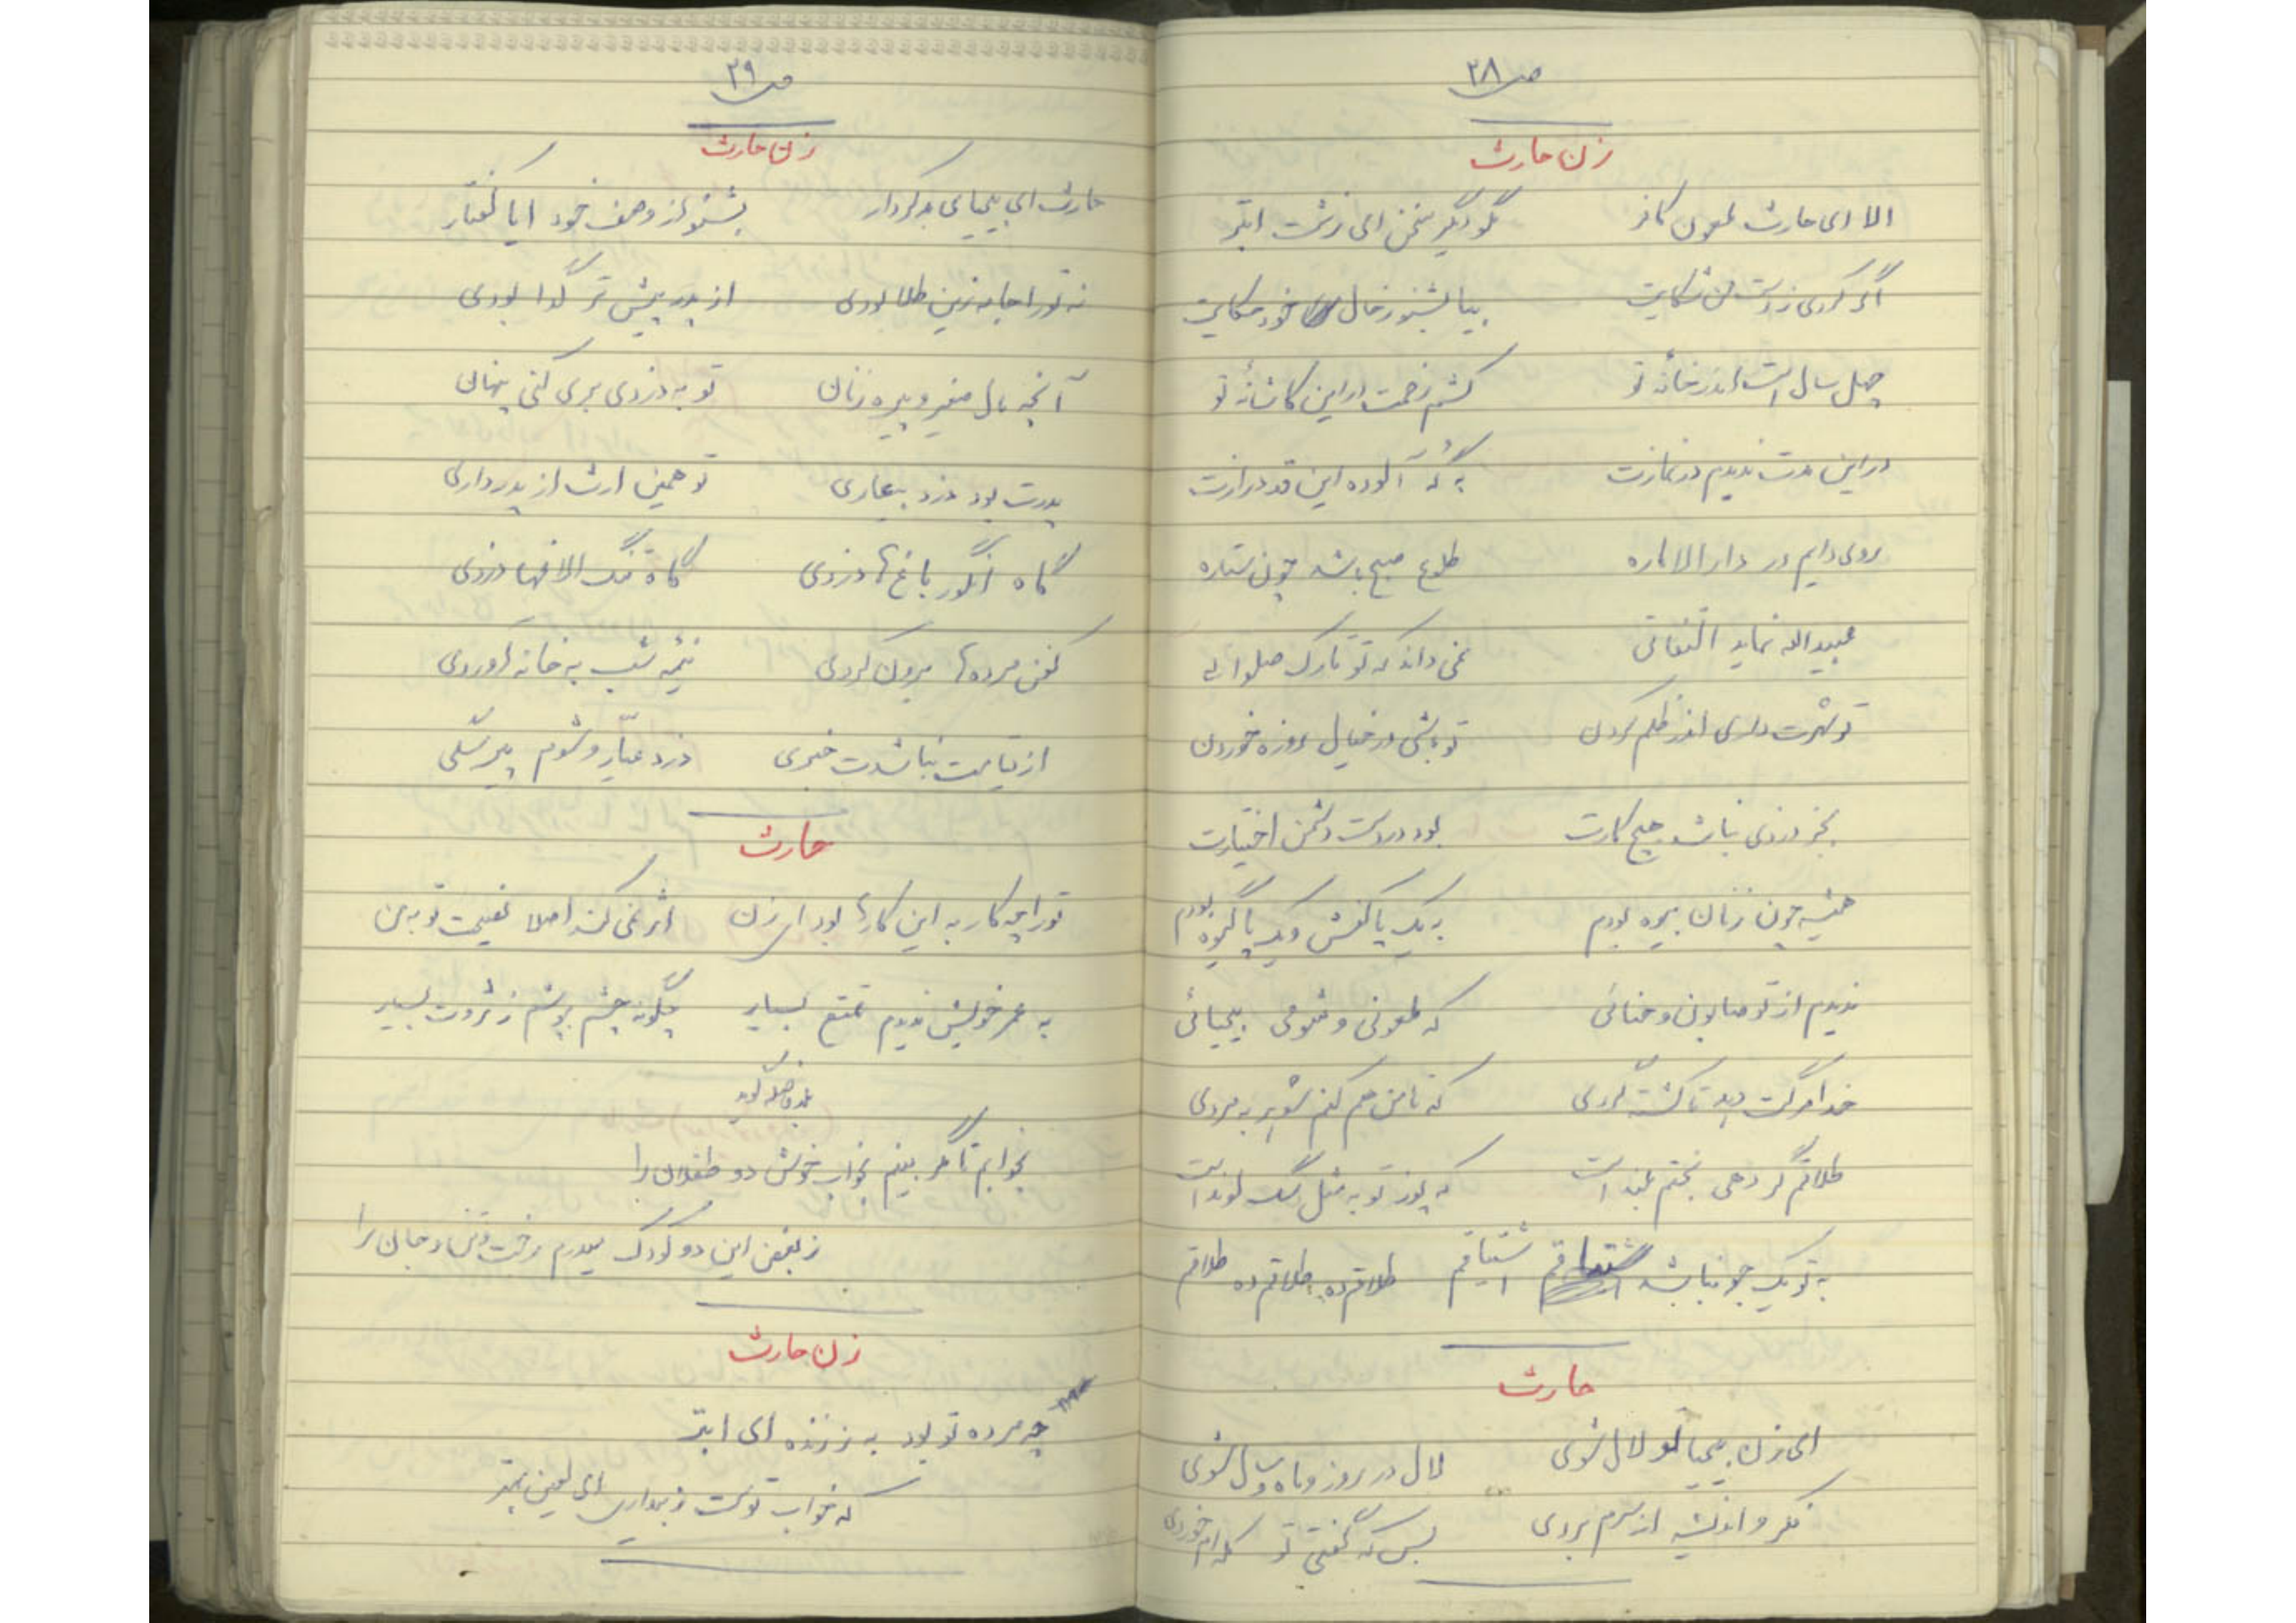 ص ۲۸
زن حارث
الا ای حارث ملعون کافر مگو دیگر سخن ای زشت ابتر
اگر کردی ز دست من شکایت بیا بشنو ز حال خود حکایت
چهل سال است اندر خانهٔ تو کشم زحمت در این کاشانهٔ تو
در این مدت ندیدم در نمازت به گُه آلوده این قد درازت
روی دایم در دار الاماره طلوع صبح باشد چون ستاره
عبیداله نماید التفاتی نمی داند که تو تارک صلواتی
تو شهرت داری اندر ظلم کردن تو باشی در خیال روزه خوردن
بجز دزدی نباشد هیچ کارت بود در دست دشمن اختیارت
همیشه چون زنان بیوه بودم به یک پا کفش و یک پا گیوه بودم
ندیدم از تو صابون و حنائی که ملعونی و شومی بیحیائی
خدا مرگت دهد تا کشته گردی که تا من هم کنم شوهر به مردی
طلاقم گر دهی بختم بلند است که پوز تو به مثل سگ لوند است
به تو یک جو نباشد اشتیاقم طلاقم ده طلاقم ده طلاقم
حارث
ای زن بیحیا تو لال شوی لال در روز و ماه و سال شوی
فکر و اندیشه از سرم بردی بس که گفتی تو کله ام خوردی
ص ۲۹
زن حارث
حارث ای بیحیای بد کردار بشنو از وصف خود ایا گفتار
نه تو را جامه زرین طلا بودی از پدر پیش تر گدا بودی
آنچه مال صغیر و پیره زنان تو به دزدی بری کنی پنهان
پدرت بود دزد بیعاری تو همین ارث از پدر داری
گاه انگور باغ ها دزدی گاه تنگ الاغها دزدی
کفن مرده ها برون کردی نیمه شب به خانه آوردی
از قیامت نباشدت خبری دزد عیّار و شوم پیر سگی
حارث
تو را چه کار به این کارها بود ای زن اثر نمی کند اصلا نصیحت تو به من
به عمر خویش ندیدم تمتع بسیار چگونه چشم بپوشم ز ثروت بسیار
بلافاصله گوید
بخوابم تا مگر بینم بخواب خوش دو طفلان را
ز بغض این دو کودک میدرم رخت تن و جان را
زن حارث
چه مرده تو بود به ز زنده ای ابتر
که خواب توست ز بیداری ای لعین بهتر